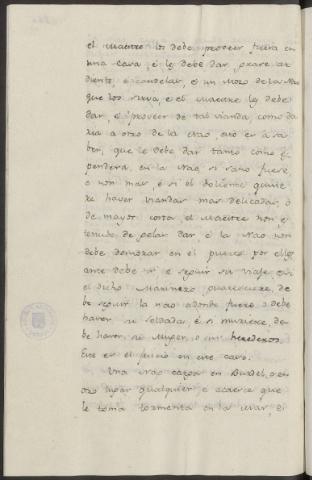 el Maestre los debe proveer fuera en
una Casa, é le debe dar, para ar
diente, é candelas, é un Mozo de la Nao
que los sirva, é el Maestre le debe
dar, é proveer de tal vianda, como da
ria a otro de la Nao, esto es á sa
ber, que le debe dar tanto como es
penderá, en la Nao, si sano fuere,
é non mas, é si el doliente quisie
re haver viandas mas delicadas, ó
de mayor costa, el Maestre non es
tenudo de dar, é la Nao non
debe demorar en el puerto por el
ante debe ir é seguir su viaje, é si
el dicho Marinero guaresciere, de
be seguir la nao adonde fuere, é debe
haver su soldada, é si muriere, de
be haver su Muger, o sus herederos.
Este es el juicio en este caso.
Una nao carga en Burdel, o en
otro lugar qualquier, e acaesce que
le toma tormenta en la mar, é